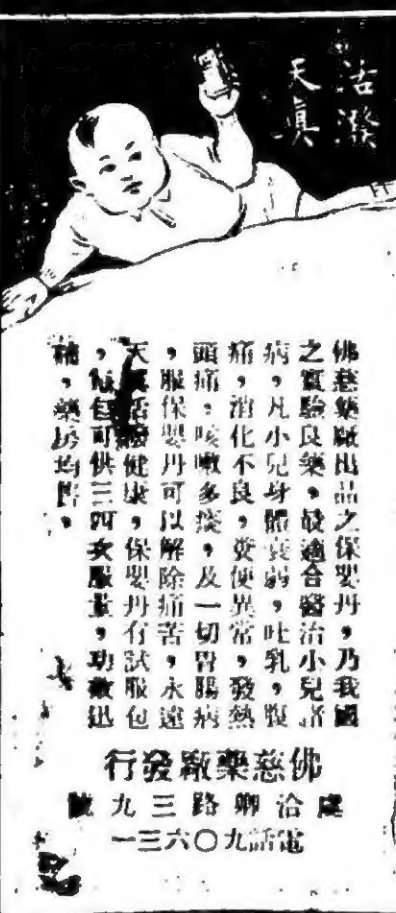 活潑
天眞
佛慈藥廠出品之保嬰丹,乃我國
之實驗良藥,最適合醫治小兒諸
病,凡小兒身體衰弱,吐乳,腹
痛,消化不良,糞便異常,發熱
頭痛,咳嗽多痰,及一切胃腸病
,服保嬰丹可以解除痛苦,永遠
天眞活潑健康,保嬰丹有試服包
,每包可供三四次服量,功效迅
,藥房均售。
佛慈藥廠發行
虞洽卿路三九號
電話九〇六三一